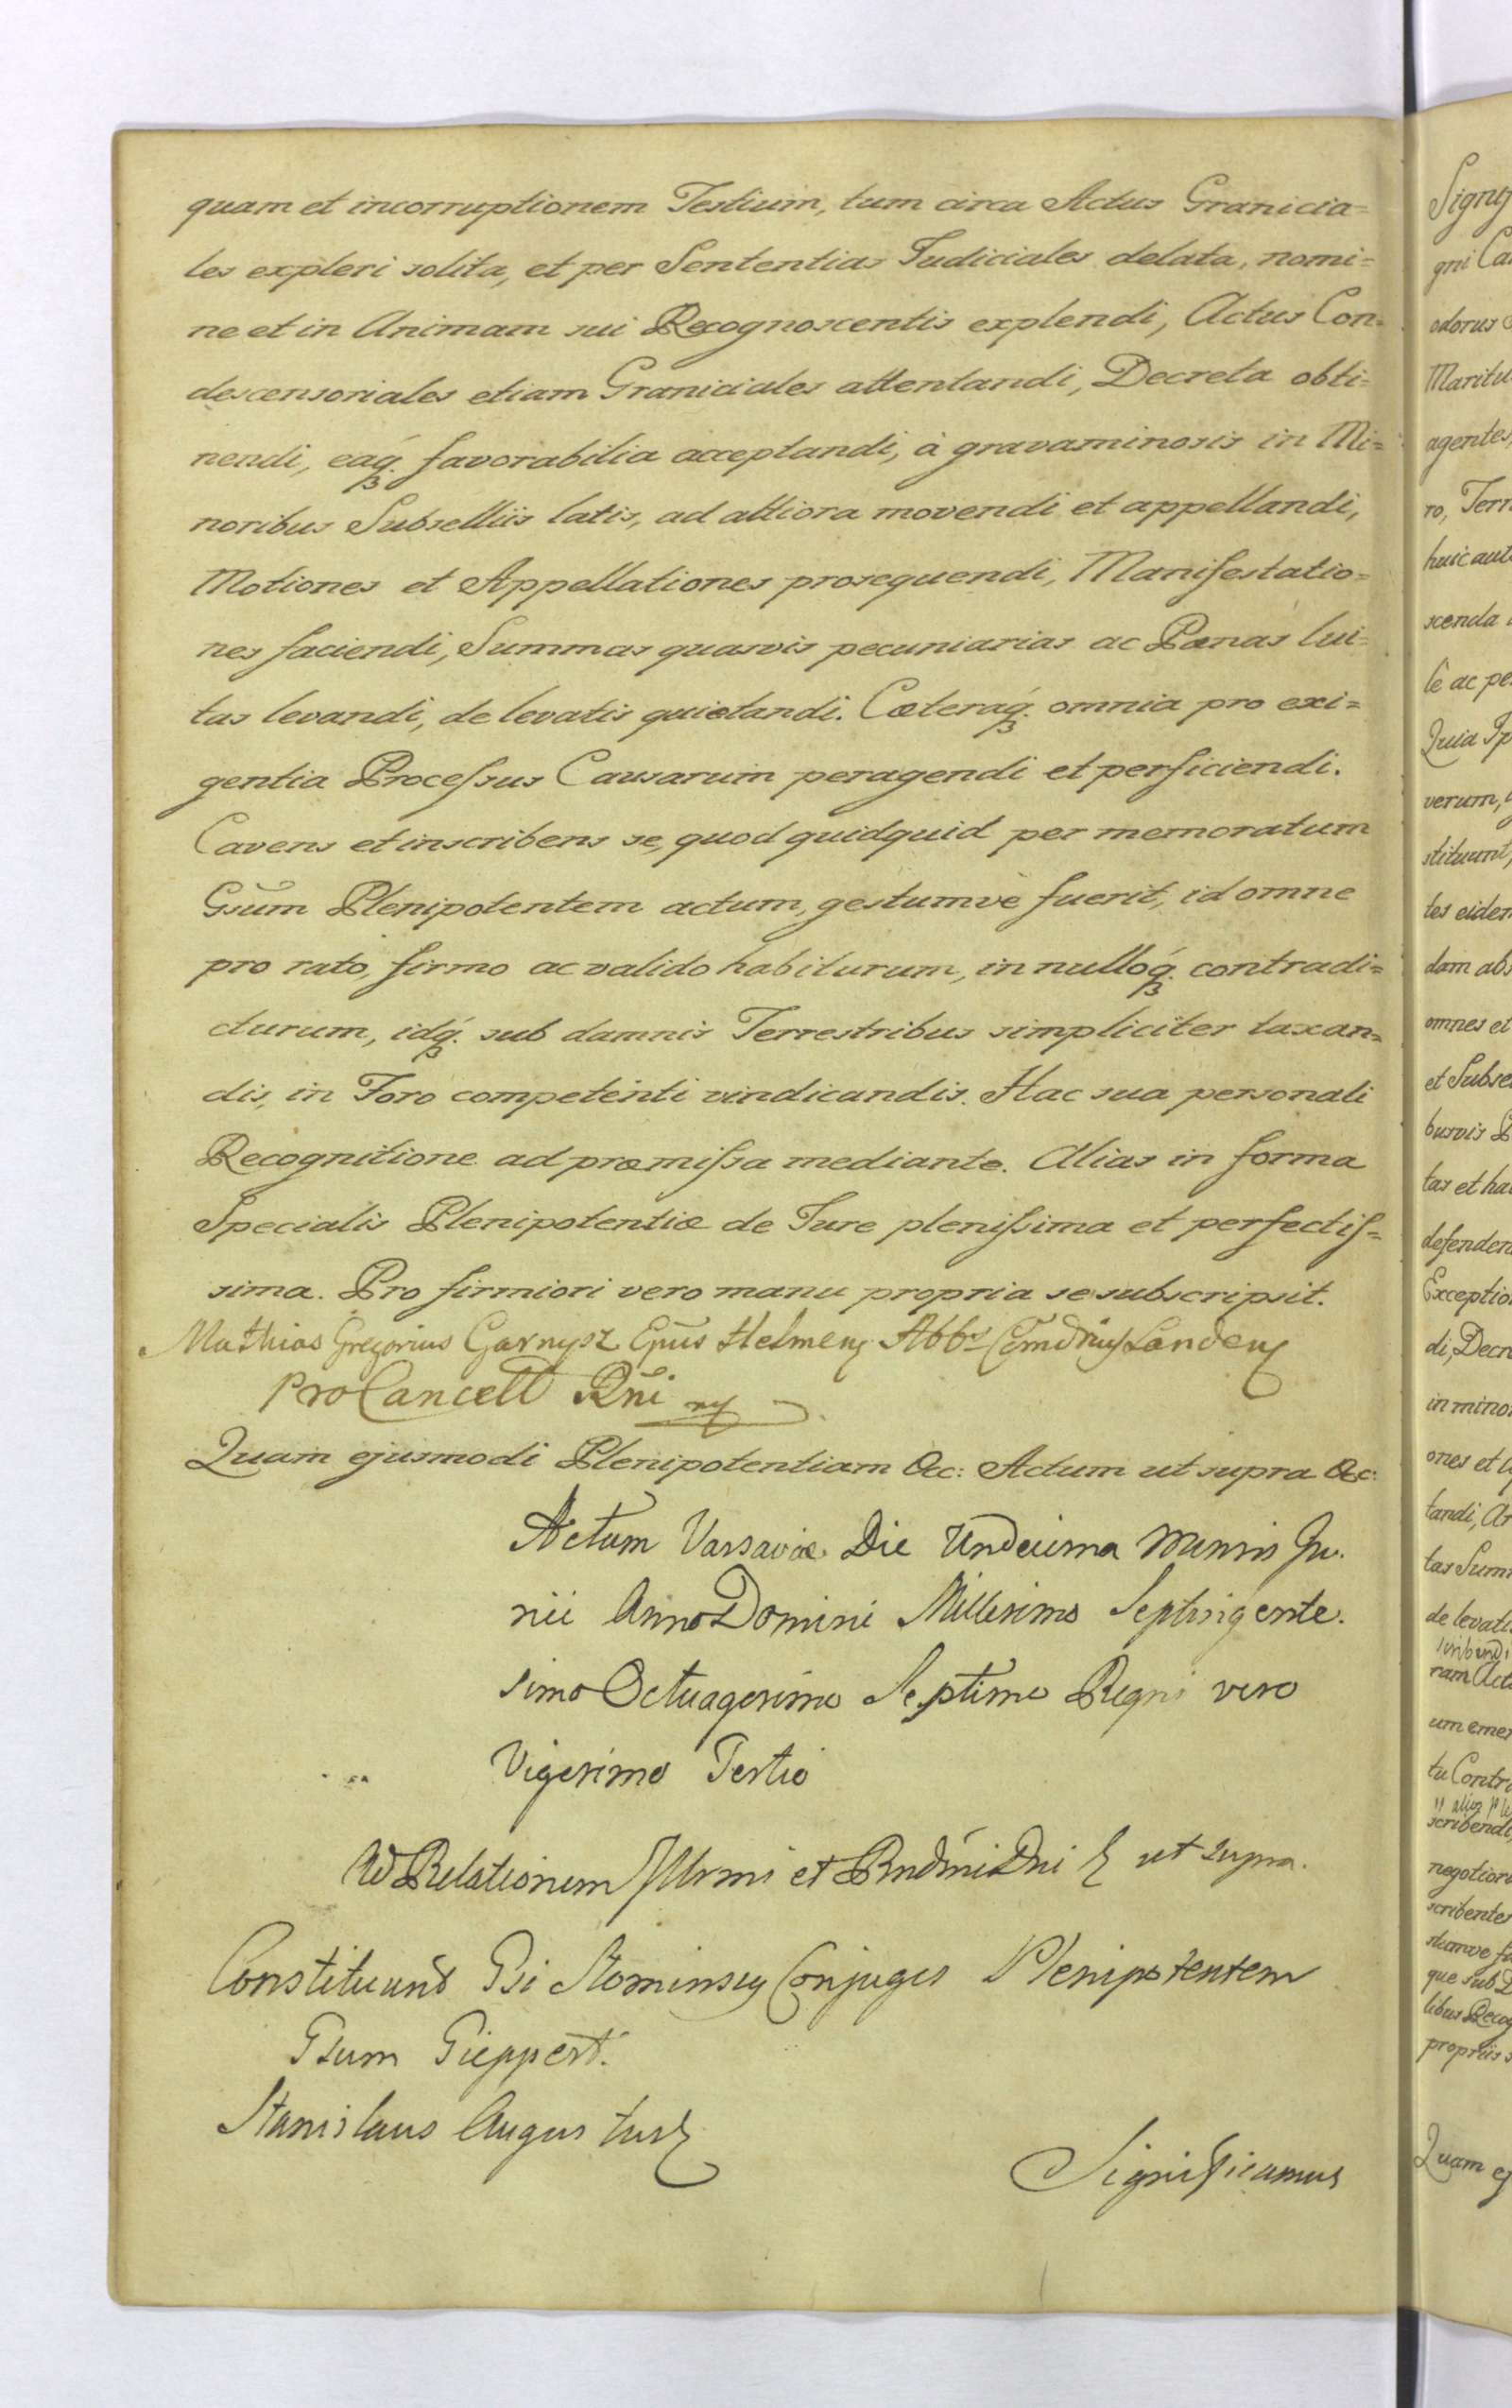 quam et incorruptionem Testium, tum circa Actus Granicia=
les expleri solita, et per Sententias Judiciales delata, nomi=
ne et in Animam sui Recognoscentis explendi, Actus Con=
descensoriales etiam Graniciales attentandi, Decreta obti=
nendi, eaq́ꝫ favorabilia acceptandi, à gravaminosis in Mi=
noribus Subselliis latis, ad altiora movendi et appellandi,
Motiones et Appellationes prosequendi, Manifestatio=
nes faciendi, Summas quasvis pecuniarias ac Pœnas lui=
tas levandi, de levatis quietandi. Cœteraq́ꝫ omnia pro exi=
gentia Processus Causarum peragendi et perficiendi.
Cavens et inscribens se, quod quidquid per memoratum
Gsum Plenipotentem actum, gestumve fuerit, id omne
pro rato, firmo ac valido habiturum, in nulloq́ꝫ contradi=
cturum, idq́ꝫ sub damnis Terrestribus simpliciter taxan=
dis, in Foro competenti vindicandis. Hac sua personali
Recognitione ad præmissa mediante. Alias in forma
Specialis Plenipotentiæ de Jure plenissima et perfectis=
sima. Pro firmiori vero manu propria se subscripsit.
Mathias Gregorius Garnysz Epūs Helmenꝭ Abbs Comdrius Landenꝭ
ProCancell Rñi
Quam ejusmodi Plenipotentiam &c: Actum ut supra &c:
Actum Varsaviæ Die Undecima Mensis Ju.
nii Anno Domini Millesimo Septingente.
simo Octuagesimo Septimo Regni vero
Vigesimo Tertio
Ad Relationem Illrmi et Rndmi Dni ut supra.
Constituunt Gsi Slominscy Conjuges Plenipotentem
Gsum Gieppert.
Stanislaus Augustus
Significamus